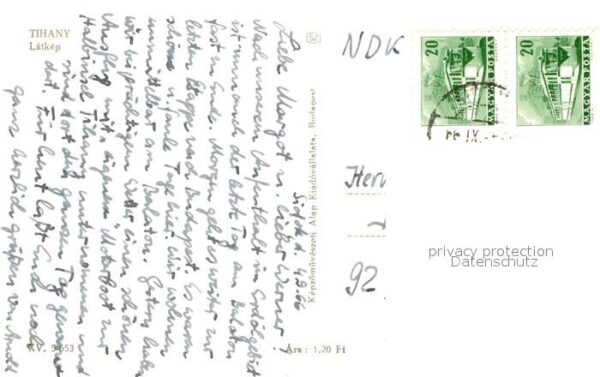 TIHANY
Látkép
Siófok d. 4.9.66
Liebe Margot u. lieber Werner!
Nach unserem Aufenthalt im Erdölgebiet
ist nun auch der letzte Tag am Balaton
fast zu Ende. Morgen geht es weiter zur
letzten Etappe nach Budapest. Es waren
schöne Tage hier wir wohnen
unmittelbar am Balaton. Gestern haben
wir einen schönen
Ausflug mit "eigenem" Motorboot zur
Halbinsel Tihany unternommen und
sind dort den ganzen Tag gewesen
Für heut laßt Euch
ganz herzlich grüßen von
XV. 5653
Képzőművészeti Alap Kiadóvállalata, Budapest
Ára: 1,20 Ft
NDK
Herr
92
20
MAGYAR POSTA
20
MAGYAR POSTA
privacy protection
Datenschutz